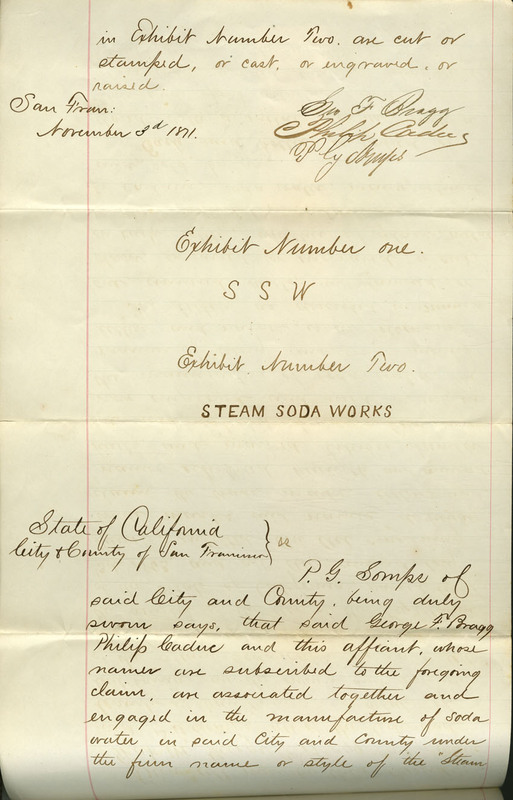 in Exhibit Number Two. are cut or
stamped, or cast, or engraved, or
raised.
San Fran:
November 3d 1871.
Geo F. Bragg
Philip Caduc
P G Somps
Exhibit Number one.
S S W
Exhibit Number Two.
STEAM SODA WORKS
State of California
City & County of San Francisco } ss
P. G. Somps of
said City and County, being duly
sworn says, that said George F. Bragg
Philip Caduc and this affiant, whose
names are subscribed to the foregoing
claim, are associated together and
engaged in the manufacture of soda
water in said City and County under
the firm name or style of the "Steam